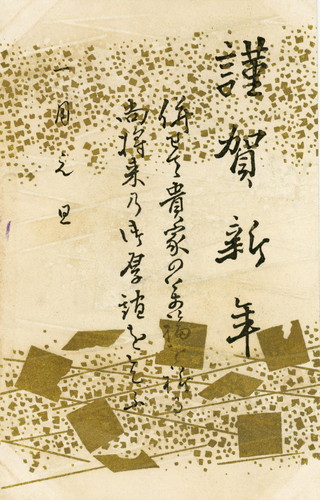 謹賀新年
併せて貴家の万福を祈る
尚将来乃御厚誼を乞ふ
一月元旦